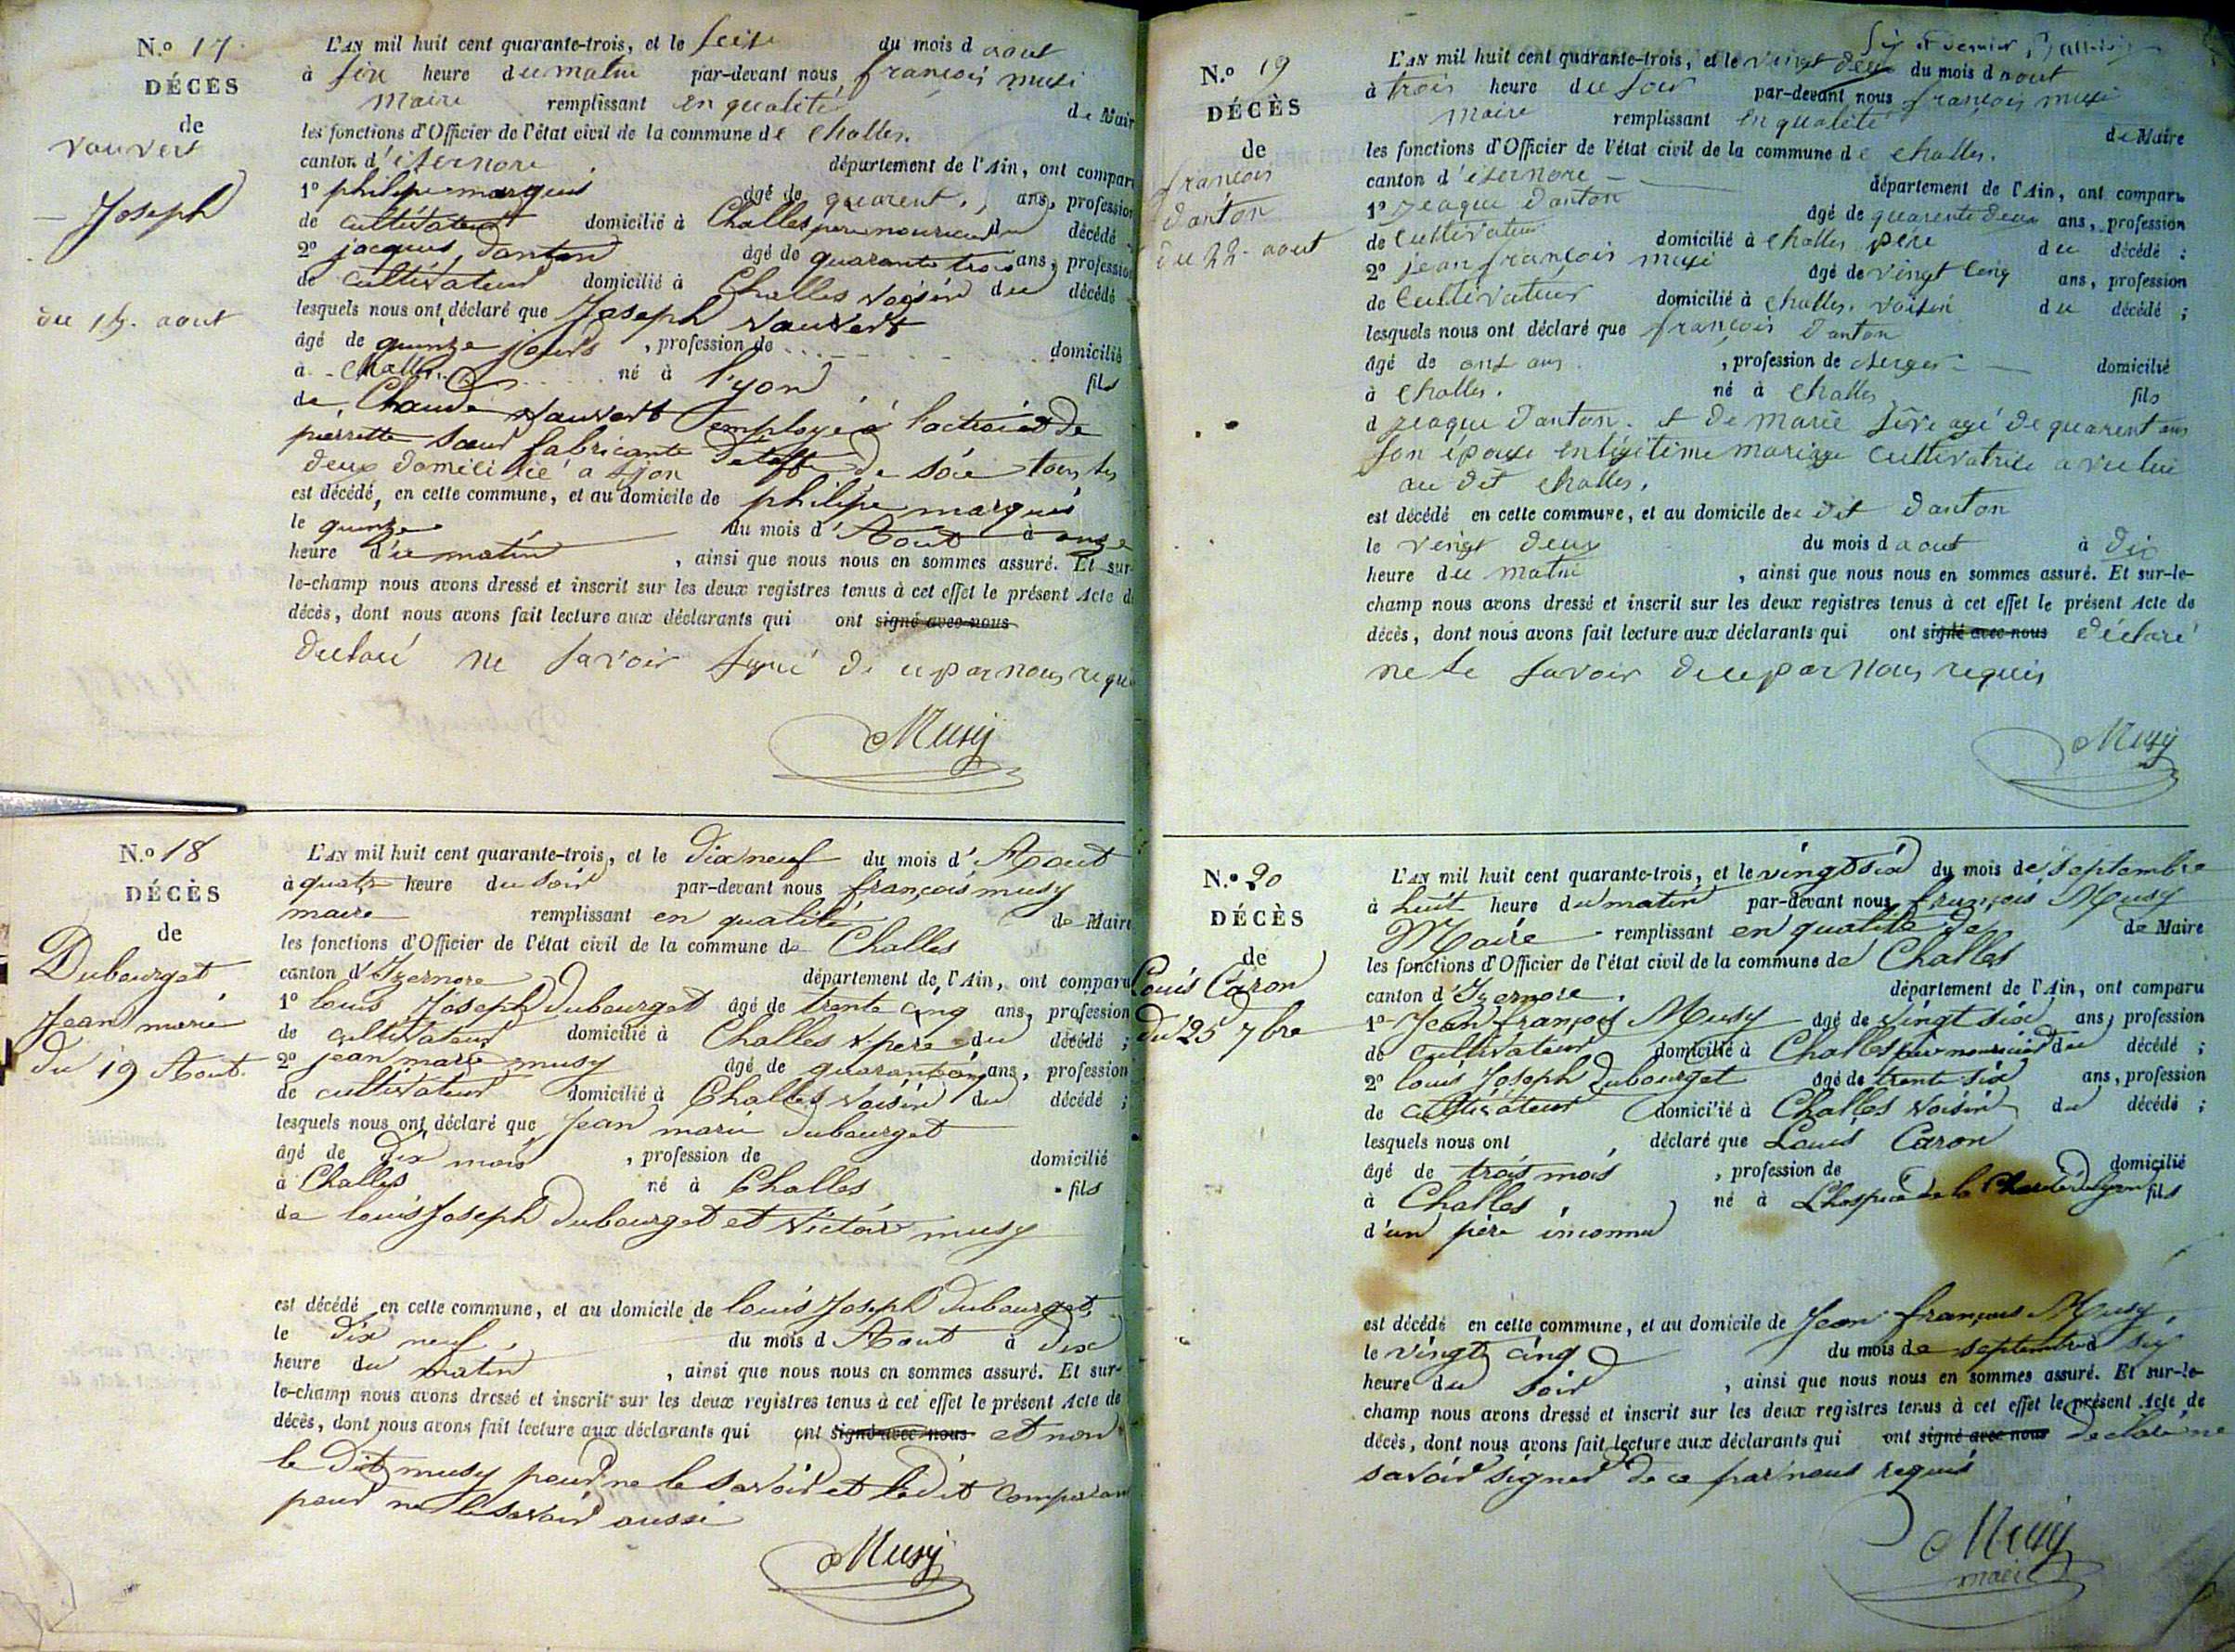 N.o 17.
DÉCÈS
de
vauvert
Joseph
du 15. aout
L'AN mil huit cent quarante-trois, et le seise du mois d aout
à six heure du matin par-devant nous françois musi
maire remplissant en qualité de Mair
les fonctions d'Officier de l'état civil de la commune de challes.
canton d'isernore département de l'Ain, ont compar
1º philipe marquis âgé de quarent. ans, profession
de cultivateur domicilié à Challes père nouricier du décédé
2º jacques danton âgé de quarante trois ans, profession
de cultivateur domicilié à Challes voisin du décédé
lesquels nous ont déclaré que Joseph vauvert
âgé de quinze jours , profession de domicilié
à Challes né à lyon fils
de Claude vauvert employé a l'octroi et de
pierrette sœur fabricante d'etoffe de soie tous les
deux domicilié a lyon
est décédé, en cette commune, et au domicile de philipe marquis
le quinze du mois d'Aout à onze
heure du matin , ainsi que nous nous en sommes assuré. Et sur-
le-champ nous avons dressé et inscrit sur les deux registres tenus à cet effet le présent Acte de
décès, dont nous avons fait lecture aux déclarants qui ont signé avec nous
declaré ne savoir signé de ce par nous requi
Musy
N.o 18
DÉCÈS
de
Dubourget
Jean marie
du 19 Aout.
L'AN mil huit cent quarante-trois, et le dix neuf du mois d'Aout
à quatre heure du soir par-devant nous françois musy
maire remplissant en qualité de Maire
les fonctions d'Officier de l'état civil de la commune de Challes
canton d'Izernore département de l'Ain, ont comparu
1º louis Joseph dubourget âgé de trente cinq ans, profession
de cultivateur domicilié à Challes père du décédé ;
2º jean marie musy âgé de quarante ans, profession
de cultivateur domicilié à Challes voisin du décédé ;
lesquels nous ont déclaré que Jean marie dubourget
âgé de dix mois , profession de domicilié
à Challes né à Challes fils
de louis Joseph dubourget et victoire musy
est décédé en cette commune, et au domicile de louis Joseph dubourget,
le dix neuf du mois d Aout à dix
heure du matin , ainsi que nous nous en sommes assuré. Et sur-
le-champ nous avons dressé et inscrit sur les deux registres tenus à cet effet le présent Acte de
décès, dont nous avons fait lecture aux déclarants qui ont signé avec nous et non
le dit musy pour ne le savoir et ledit comparant
pour ne le savoir aussi
Musy
N.o 19
DÉCÈS
de
françois
danton
du 22. aout
Six et dernier
L'AN mil huit cent quarante-trois, et le vingt deux du mois d aout
à trois heure du soir par-devant nous françois musi
maire remplissant en qualité de Maire
les fonctions d'Officier de l'état civil de la commune de challes.
canton d'isernore département de l'Ain, ont comparu
1º jeaque danton âgé de quarente deux ans, profession
de cultivateur domicilié à challes père du décédé ;
2º jean françois musi âgé de vingt cinq ans, profession
de cultivateur domicilié à challes. voisin du décédé ;
lesquels nous ont déclaré que françois danton
âgé de onze ans , profession de berger domicilié
à challes. né à challes fils
d jeaque danton. et de marie sève agé de quarent ans
son épouse en légitime mariage cultivatrice avec lui
au dit challes.
est décédé en cette commune, et au domicile de dit danton
le vingt deux du mois d aout à dix
heure du matin , ainsi que nous nous en sommes assuré. Et sur-le-
champ nous avons dressé et inscrit sur les deux registres tenus à cet effet le présent Acte de
décès, dont nous avons fait lecture aux déclarants qui ont signé avec nous déclaré
ne le savoir de ce par nous requis
Musy
N.o 20
DÉCÈS
de
Louis Caron
du 25 7bre
L'AN mil huit cent quarante-trois, et le vingt six du mois de septembre
à huit heure du matin par-devant nous françois Musy
Maire remplissant en qualité de de Maire
les fonctions d'Officier de l'état civil de la commune de Challes
canton d'Izernore. département de l'Ain, ont comparu
1º Jean françois Musy âgé de vingt six ans, profession
de cultivateur domicilié à Challes père nourricier du décédé ;
2º louis Joseph dubourget âgé de trente six ans, profession
de cultivateur domicilié à Challes voisin du décédé ;
lesquels nous ont , déclaré que Louis Caron
âgé de trois mois , profession de domicilié
à Challes né à L'hospice de la Charité de lyon fils
d'un père inconnu
est décédé en cette commune, et au domicile de Jean françois Musy,
le vingt cinq du mois de septembre à six
heure du soir , ainsi que nous nous en sommes assuré. Et sur-le-
champ nous avons dressé et inscrit sur les deux registres tenus à cet effet le présent Acte de
décès, dont nous avons fait lecture aux déclarants qui ont signé avec nous declaré ne
savoir signer de ce par nous requis
Musy
maire